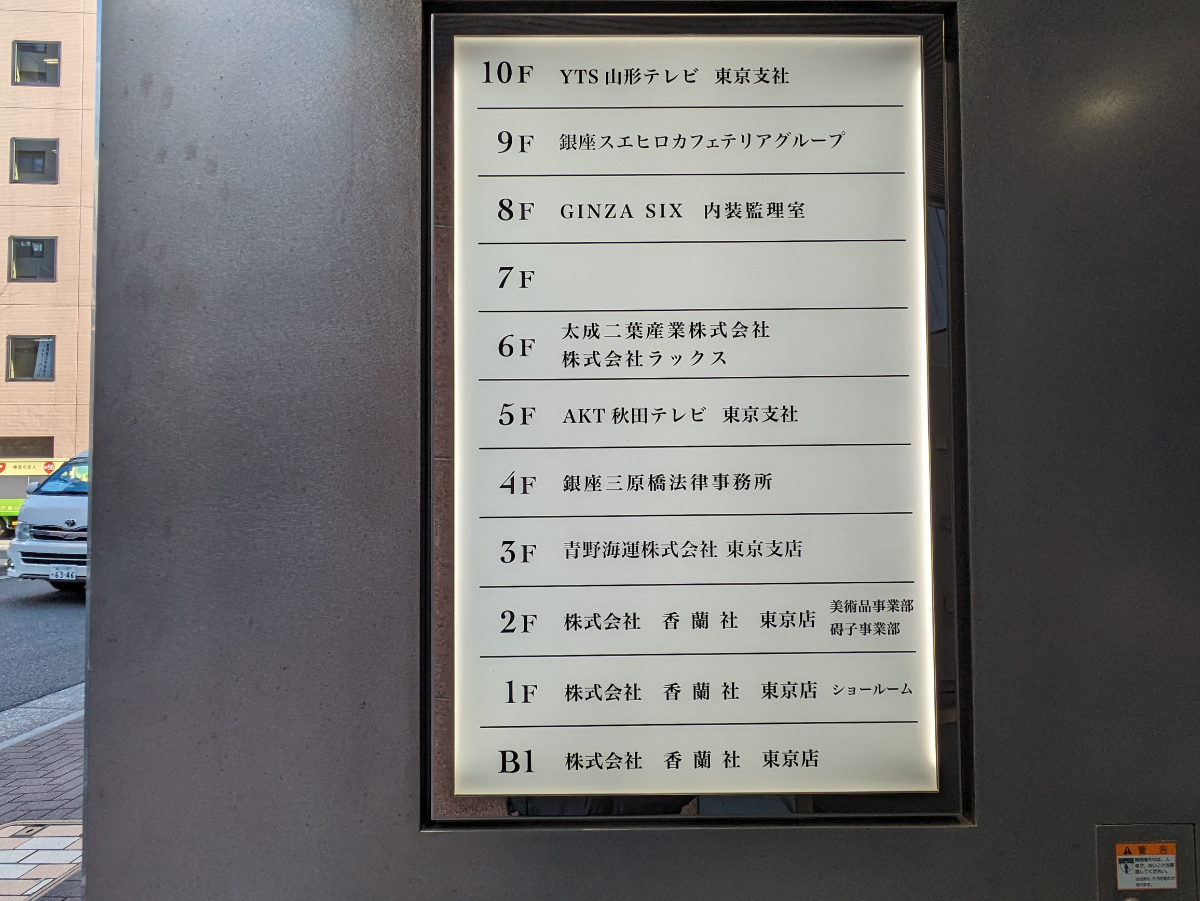 10F YTS 山形テレビ 東京支社
9F 銀座スエヒロカフェテリアグループ
8F GINZA SIX 内装監理室
7F
6F 太成二葉産業株式会社
株式会社ラックス
5F AKT 秋田テレビ 東京支社
4F 銀座三原橋法律事務所
3F 青野海運株式会社 東京支店
2F 株式会社 香蘭社 東京店 美術品事業部
碍子事業部
1F 株式会社 香蘭社 東京店 ショールーム
B1 株式会社 香蘭社 東京店
63-46
警告